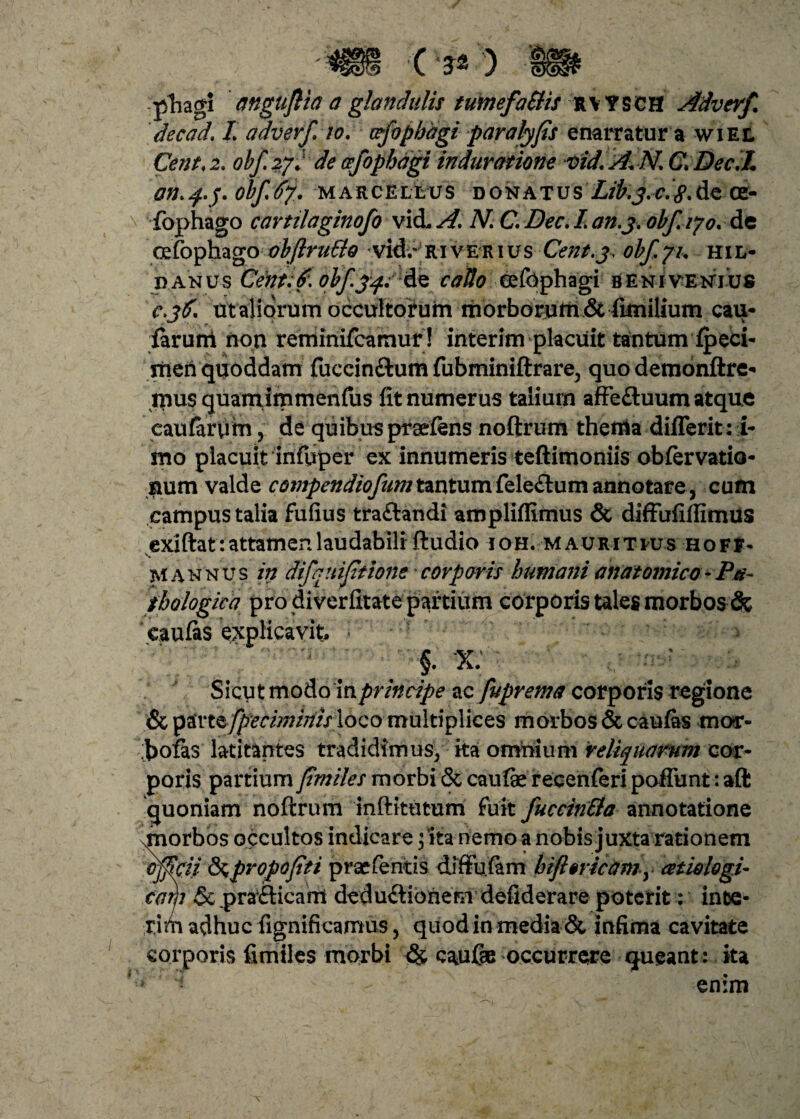 ( 32 )
phagi anguſtia a glandulis tumefactis RVYSCH Adverſ.
decad. I. adverſ. 10. œſophagi paralyſis enarratur a WIEL
Cent. 2. obſ. 27. de œſophagi induratione vid. A. N. C. Dec. I.
an. 4. 5. obſ. 67. MARCELLUS DONATUS Lib. 3. c. 8. de œ-
ſophago cartilaginoſo vid. A. N. C. Dec. I. an. 3. obſ. 170. de
œſophago obſtructo vid. RIVERIUS Cent. 3. obſ. 71. HIL-
DANUS Cent. 6. obſ. 34. de callo œſophagi BENIVENIUS
c. 36. ut aliorum occultorum morborum & ſimilium cau-
ſarum non reminiſcamur! interim placuit tantum ſpeci-
men quoddam ſuccinctum ſubminiſtrare, quo demonſtre-
mus quam immenſus ſit numerus talium affectuum atque
cauſarum, de quibus præſens noſtrum thema diſſerit: i-
mo placuit inſuper ex innumeris teſtimoniis obſervatio-
num valde compendioſum tantum ſelectum annotare, cum
campus talia fuſius tractandi ampliſſimus & diffuſiſſimus
exiſtat: attamen laudabili ſtudio IOH. MAURITIUS HOFF-
MANNUS in diſquiſitione corporis humani anatomico-Pa-
thologica pro diverſitate partium corporis tales morbos &
cauſas explicavit.
§. X.
Sicut modo in principe ac ſuprema corporis regione
& parte ſpeciminis loco multiplices morbos & cauſas mor-
boſas latitantes tradidimus, ita omnium reliquarum cor-
poris partium ſimiles morbi & cauſæ recenſeri poſſunt: aſt
quoniam noſtrum inſtitutum fuit ſuccincta annotatione
morbos occultos indicare; ita nemo a nobis juxta rationem
officii & propoſiti præſentis diffuſam hiſtoricam, ætiologi-
cam & practicam deductionem deſiderare poterit: inte-
rim adhuc ſignificamus, quod in media & infima cavitate
corporis ſimiles morbi & cauſæ occurrere queant: ita
enim